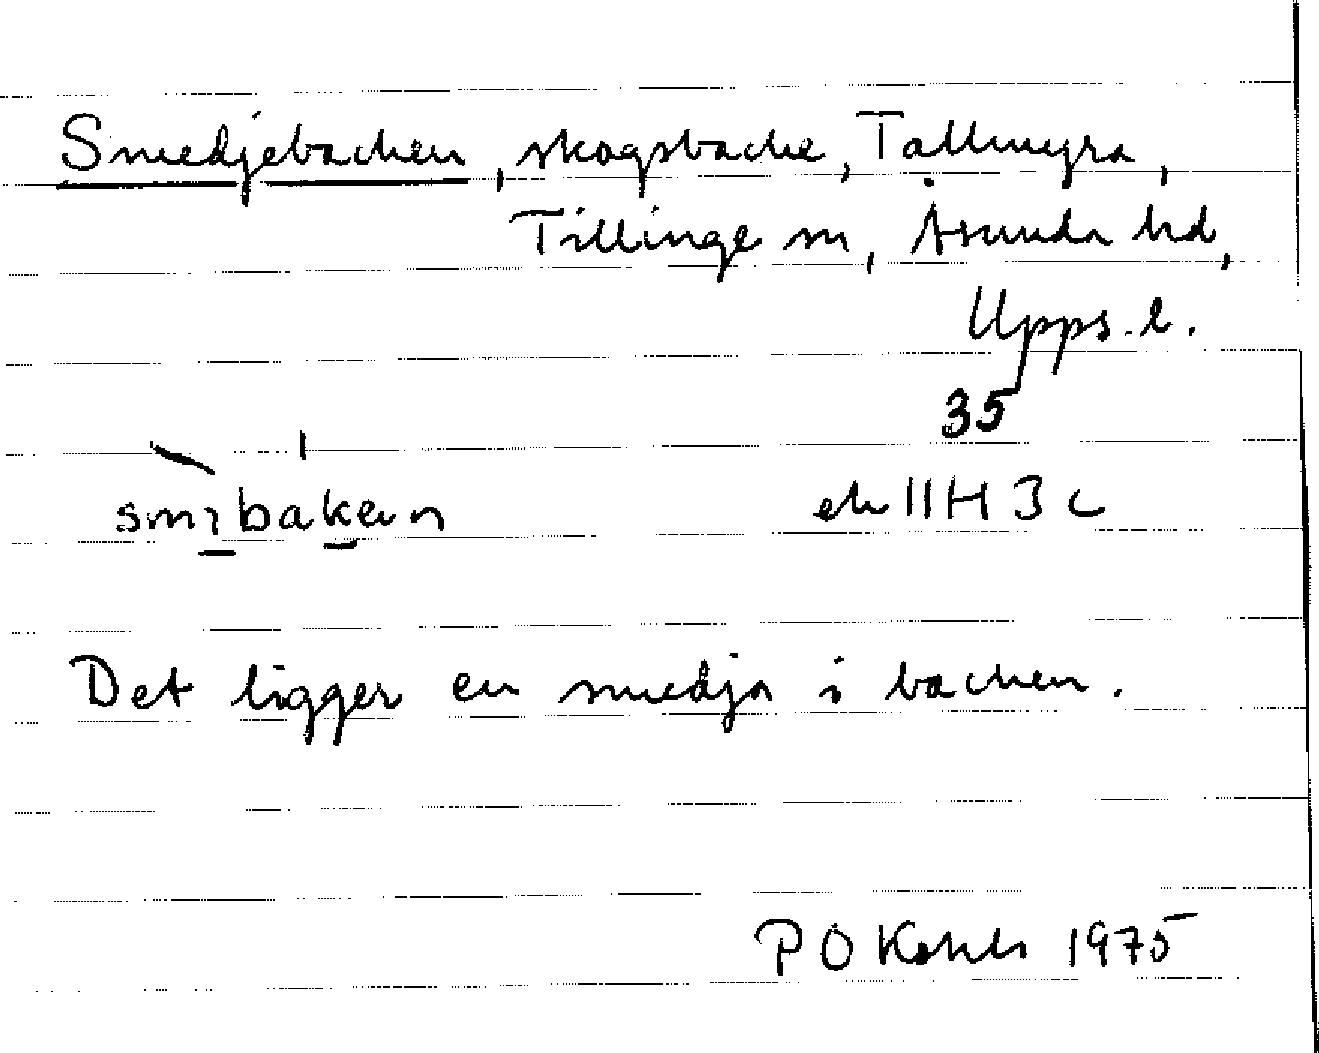 Smedjebacken, skogsbacke, Tallmyra,
Tillinge sn, Åsunda hd,
Upps. l.
35
ek 11H 3c
Det ligger en smedja i backen.
P O 1975